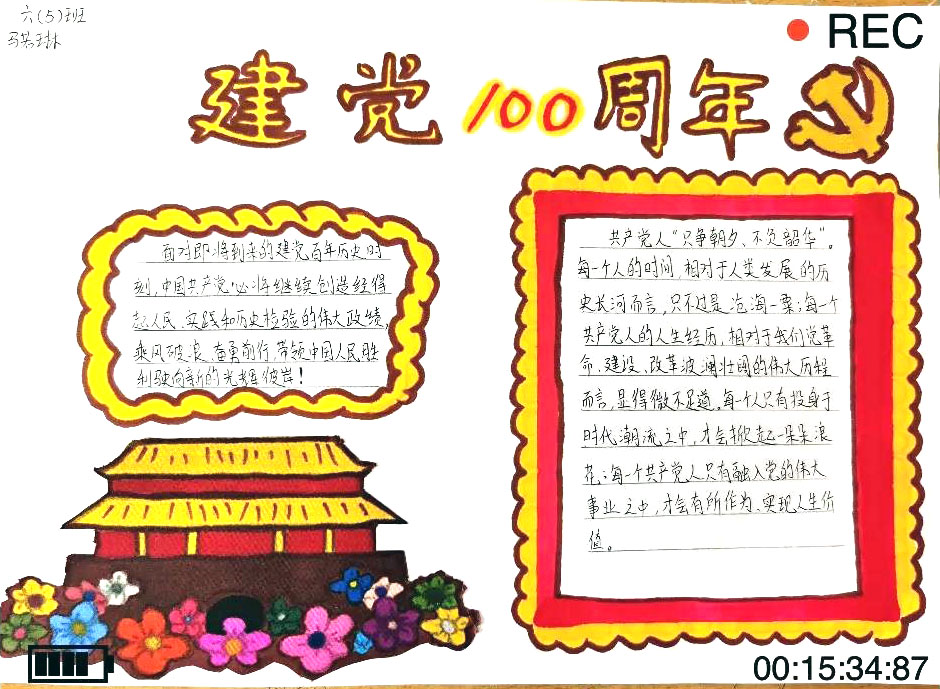 六(5)班
REC
建党100周年
面对即将到来的建党百年历史时
刻,中国共产党必将继续创造经得
起人民、实践和历史检验的伟大政绩,
乘风破浪、奋勇前行,带领中国人民胜
利驶向新的光辉彼岸!
共产党人“只争朝夕、不负韶华”。
每一个人的时间,相对于人类发展的历
史长河而言,只不过是沧海一粟;每一个
共产党人的人生经历,相对于我们党革
命、建设、改革波澜壮阔的伟大历程
而言,显得微不足道。每一个人只有投身于
时代潮流之中,才会掀起一朵朵浪
花;每一个共产党人只有融入党的伟大
事业之中,才会有所作为、实现人生价
值。
00:15:34:87